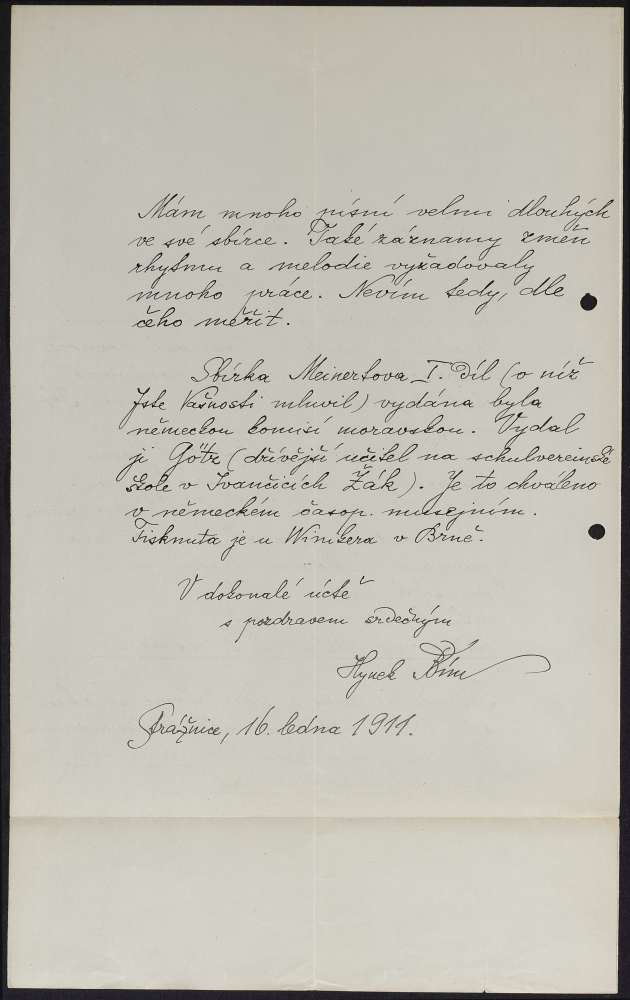 Mám mnoho písní velmi dlouhých
ve své sbírce. Také záznamy změn
rhytmu a melodie vyžadovaly
mnoho práce. Nevím tedy, dle
čeho měřit.
Sbírka Meinertova I. díl (o níž
Jste Vašnosti mluvil) vydána byla
německou komisí moravskou. Vydal
ji Götz (dřívější učitel na schulvereinské
škole v Ivančicích Žák). Je to chváleno
v německém časop. musejním.
Tisknuta je u Winikera v Brně.
V dokonalé úctě
s pozdravem srdečným
Hynek Bím
Strážnice, 16. ledna 1911.